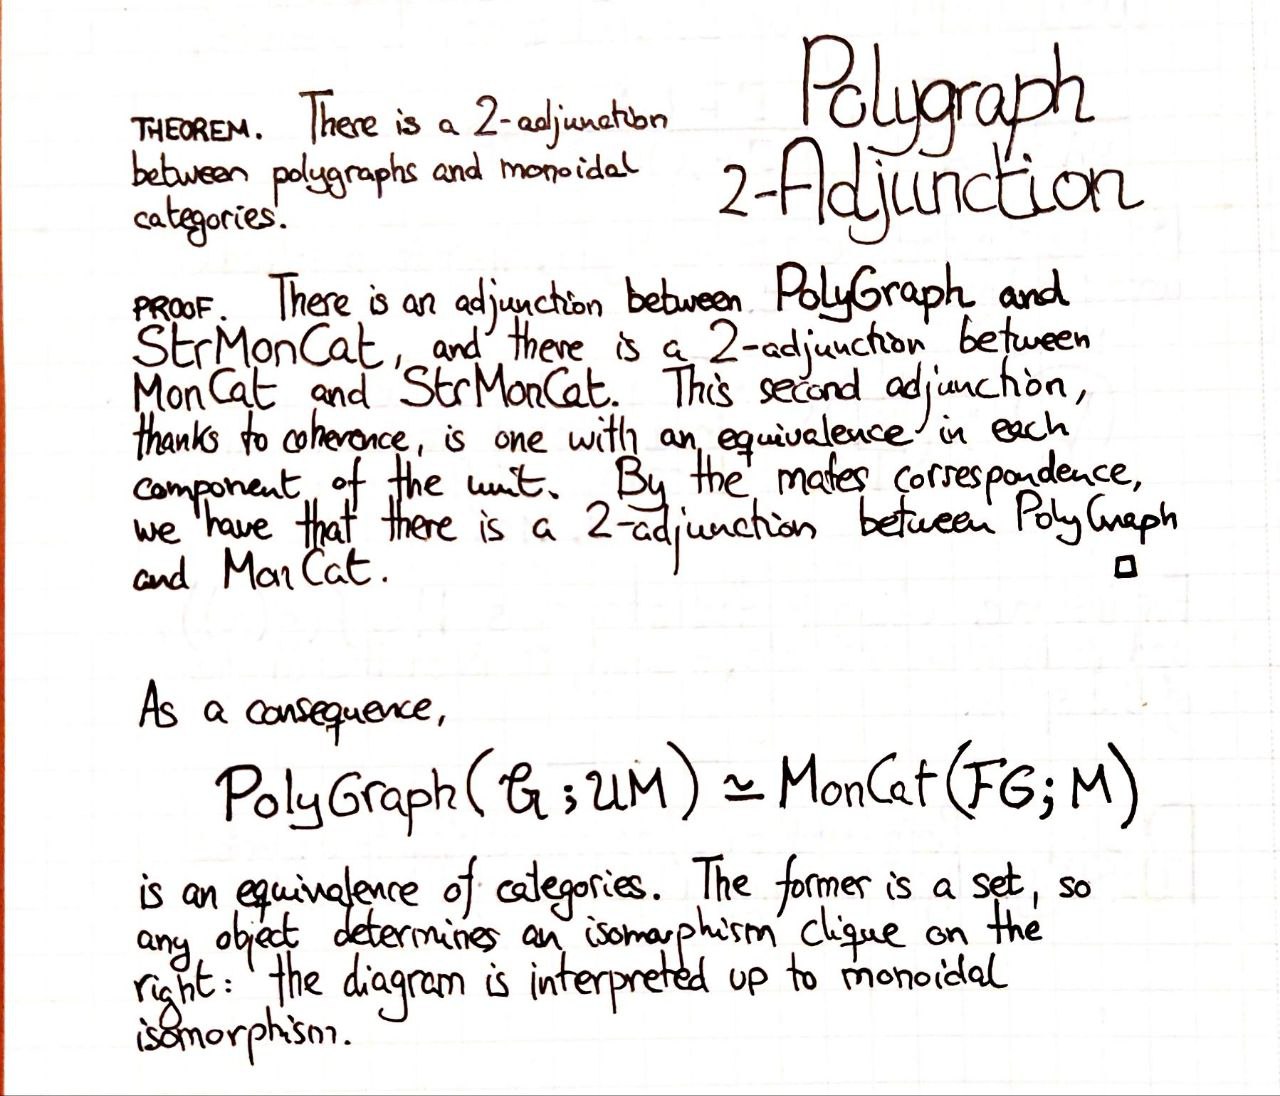 Polygraph
2-Adjunction
THEOREM. There is a 2-adjunction
between polygraphs and monoidal
categories.
PROOF. There is an adjunction between PolyGraph and
StrMonCat, and there is a 2-adjunction between
MonCat and StrMonCat. This second adjunction,
thanks to coherence, is one with an equivalence in each
component of the unit. By the mates correspondence,
we have that there is a 2-adjunction between PolyGraph
and MonCat. □
As a consequence,
PolyGraph(G; UM) ≃ MonCat(FG; M)
is an equivalence of categories. The former is a set, so
any object determines an isomorphism clique on the
right: the diagram is interpreted up to monoidal
isomorphism.